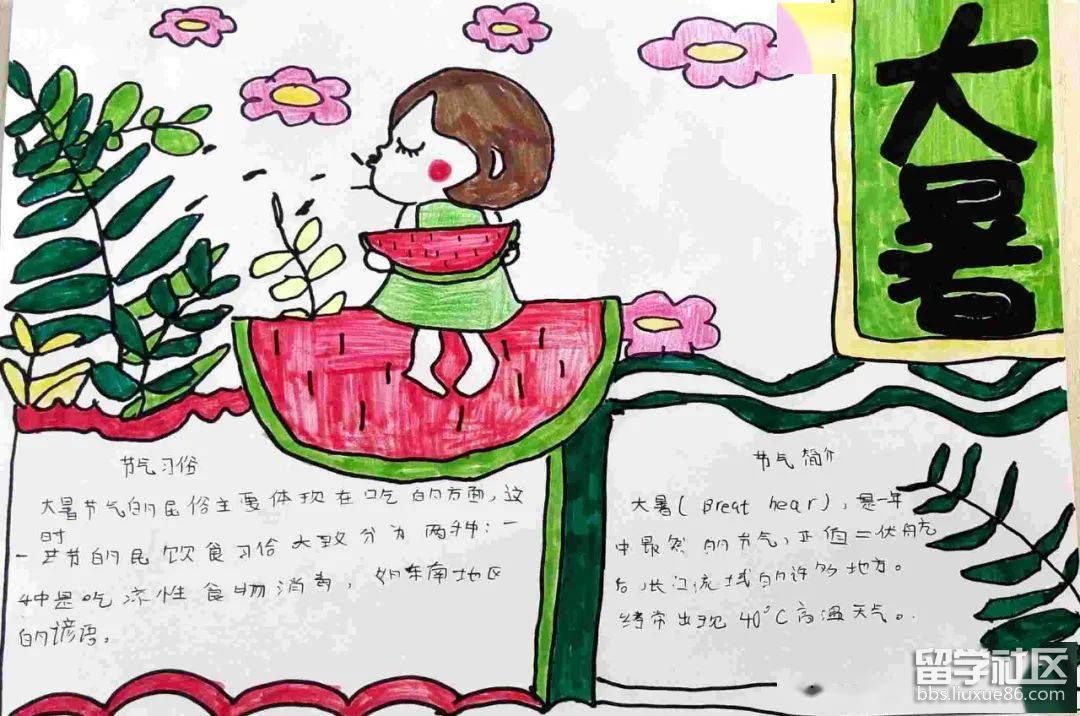 大暑
节气习俗
大暑节气的民俗主要体现在吃的方面,这
时
一节的民饮食习俗大致分为两种:一
种是吃凉性食物消暑,如东南地区
的谚语。
节气简介
大暑(Great hear),是一年
中最热的节气,正值二伏前
后,长江流域的许多地方。
经常出现40°C高温天气。
留学社区
bbs.liuxue86.com